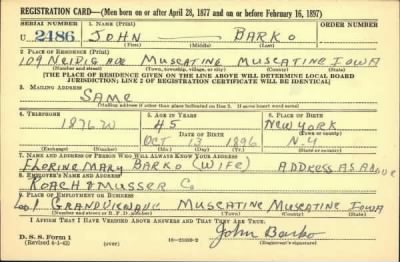 REGISTRATION CARD—(Men born on or after April 28, 1877 and on or before February 16, 1897)
SERIAL NUMBER 1. NAME (Print) ORDER NUMBER
U 2486 JOHN BARKO
(First) (Middle) (Last)
2. PLACE OF RESIDENCE (Print)
109 NEIDIG AVE MUSCATINE MUSCATINE IOWA
(Number and street) (Town, township, village, or city) (County) (State)
[THE PLACE OF RESIDENCE GIVEN ON THE LINE ABOVE WILL DETERMINE LOCAL BOARD
JURISDICTION; LINE 2 OF REGISTRATION CERTIFICATE WILL BE IDENTICAL]
3. MAILING ADDRESS
SAME
[Mailing address if other than place indicated on line 2. If same insert word same]
4. TELEPHONE 5. AGE IN YEARS 6. PLACE OF BIRTH
1876.W 45 NEW YORK
DATE OF BIRTH (Town or county)
OCT 13 1896 N.Y
(Exchange) (Number) (Mo.) (Day) (Yr.) (State or country)
7. NAME AND ADDRESS OF PERSON WHO WILL ALWAYS KNOW YOUR ADDRESS
FLORINE MARY BARKO (WIFE) ADDRESS AS ABOVE
8. EMPLOYER'S NAME AND ADDRESS
ROACH & MUSSER Co
9. PLACE OF EMPLOYMENT OR BUSINESS
GRANDVIEW AVE MUSCATINE MUSCATINE IOWA
(Number and street or R. F. D. number) (Town) (County) (State)
I AFFIRM THAT I HAVE VERIFIED ABOVE ANSWERS AND THAT THEY ARE TRUE.
D. S. S. Form 1
(Revised 4-1-42) (over) John Barko
(Registrant's signature)